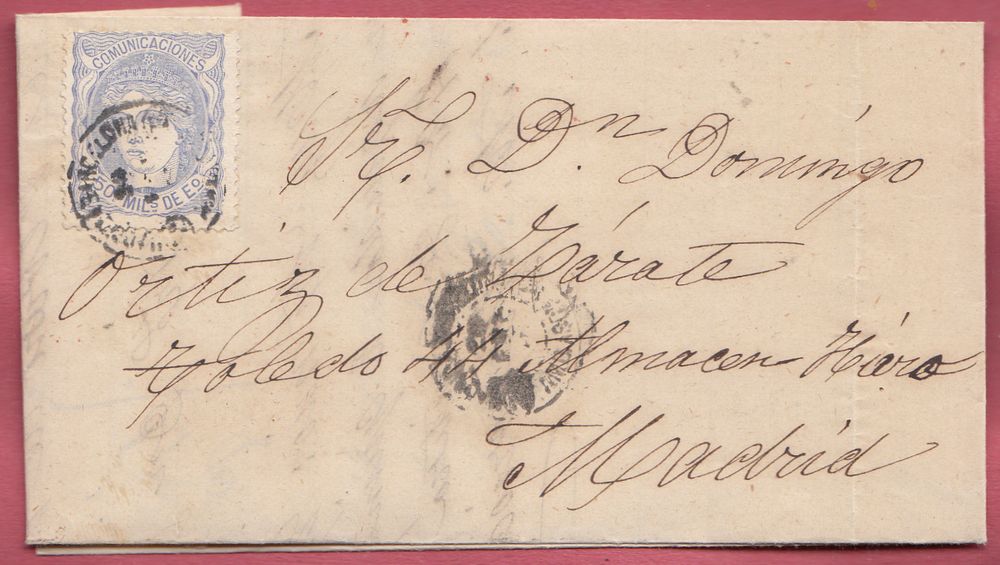 COMUNICACIONES
50 MILS DE Eº
BARCELONA
Sr. Dn Domingo
Ortiz de Zárate
Toledo 44 Almacen Hierro
Madrid